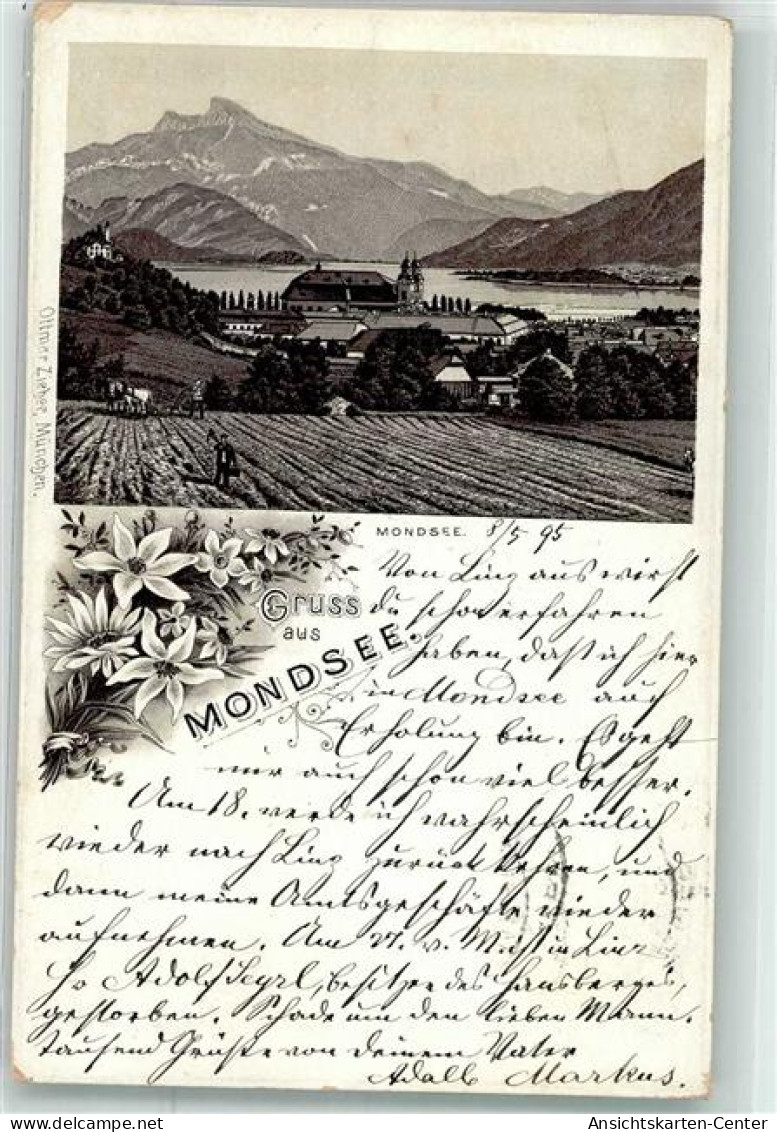 MONDSEE. 8/5 95
Ottmar Zieher, München.
Gruss
aus
MONDSEE.
Von Linz aus wirst
du schon erfahren
haben, daß ich hier
in Mondsee auf
Erholung bin. Es geht
mir auch schon viel besser.
Am 18. werde ich wahrscheinlich
wieder nach Linz zurück kehren, und
dann meine Amtsgeschäfte wieder
aufnehmen. Am 27. v. M. ist in Linz
H. Adolf, besitzer des Hansberges,
gestorben. Schade um den lieben Mann.
tausend Grüße von deinem Vater
Markus.
Ansichtskarten-Center